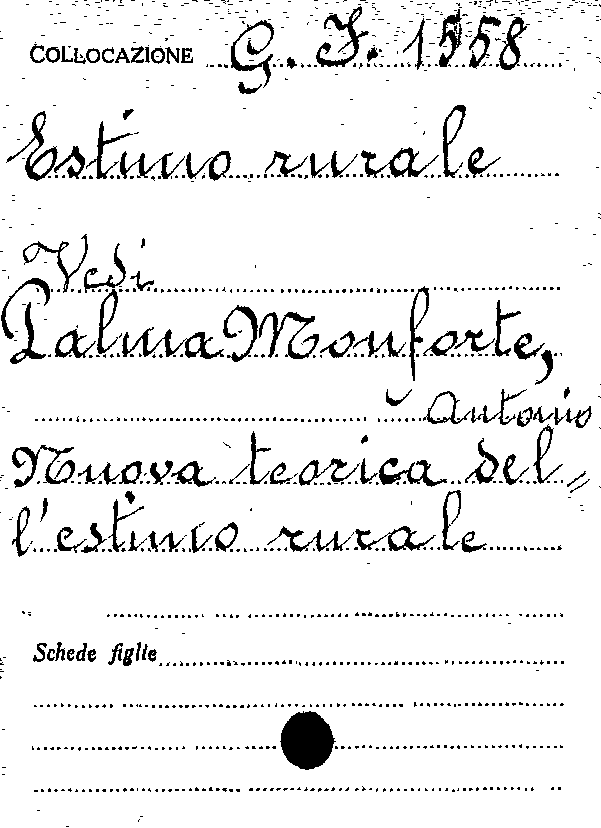 COLLOCAZIONE G. F. 1558
Estimo rurale
Vedi
Palma Monforte,
Antonio
Nuova teorica del=
l'estimo rurale
Schede figlie